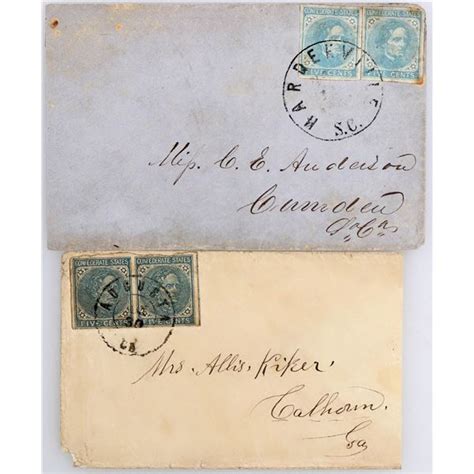 CONFEDERATE STATES CONFEDERATE STATES
FIVE CENTS FIVE CENTS
HARDEEVILLE
S.C.
Miss C. E. Anderson
Camden
So Ca
CONFEDERATE STATES CONFEDERATE STATES
FIVE CENTS FIVE CENTS
AUGUSTA
30
GA
Mrs. Allis Kiker
Calhoun.
Ga